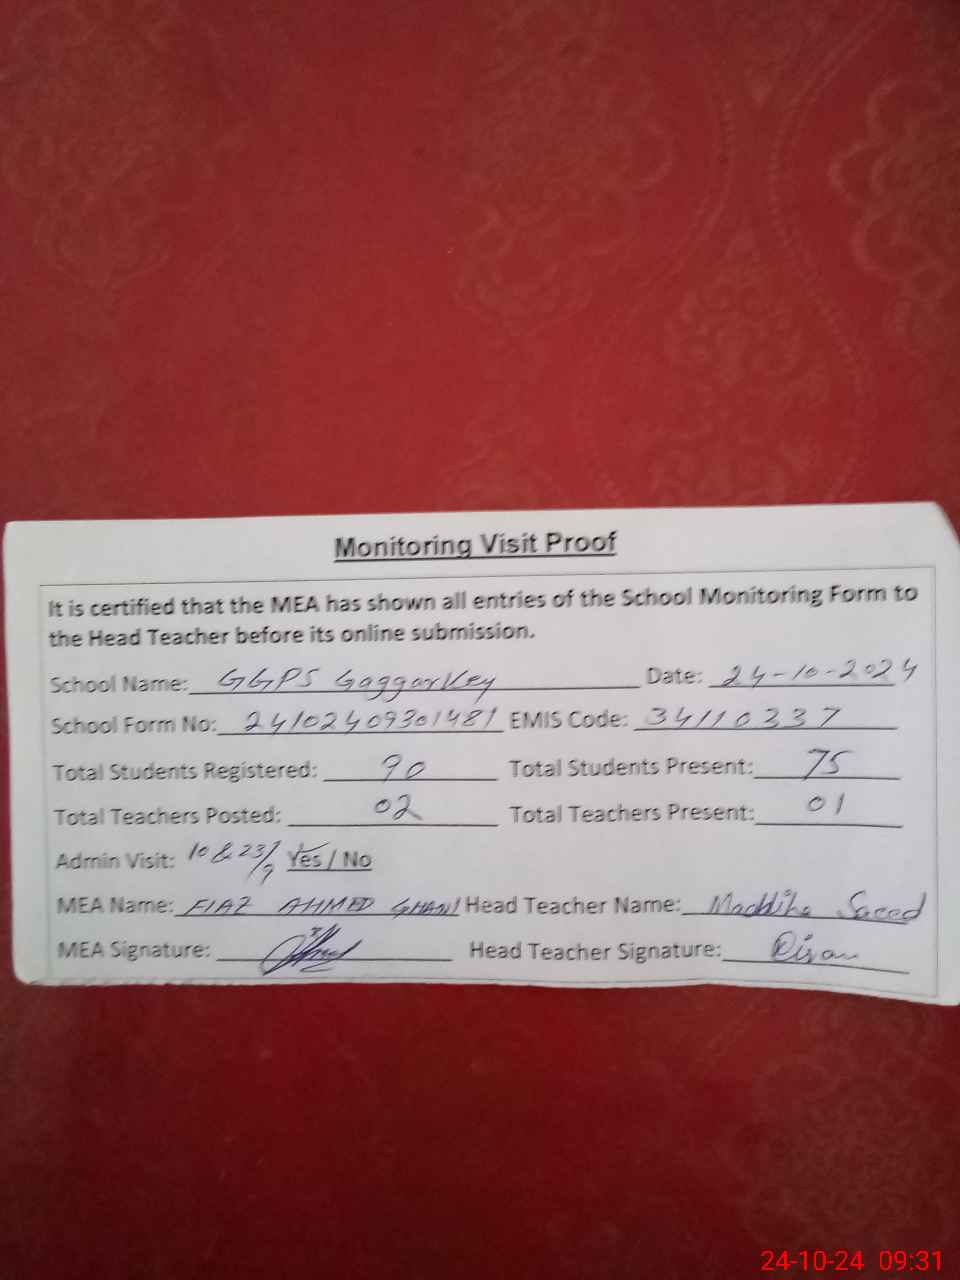 Monitoring Visit Proof
It is certified that the MEA has shown all entries of the School Monitoring Form to
the Head Teacher before its online submission.
School Name: GGPS Gaggarkey Date: 24-10-2024
School Form No: 24102409301481 EMIS Code: 34110337
Total Students Registered: 90 Total Students Present: 75
Total Teachers Posted: 02 Total Teachers Present: 01
Admin Visit: 10 & 23/9 Yes / No
MEA Name: FIAZ AHMED GHANI Head Teacher Name: Maddiha Saeed
MEA Signature: Head Teacher Signature:
24-10-24 09:31